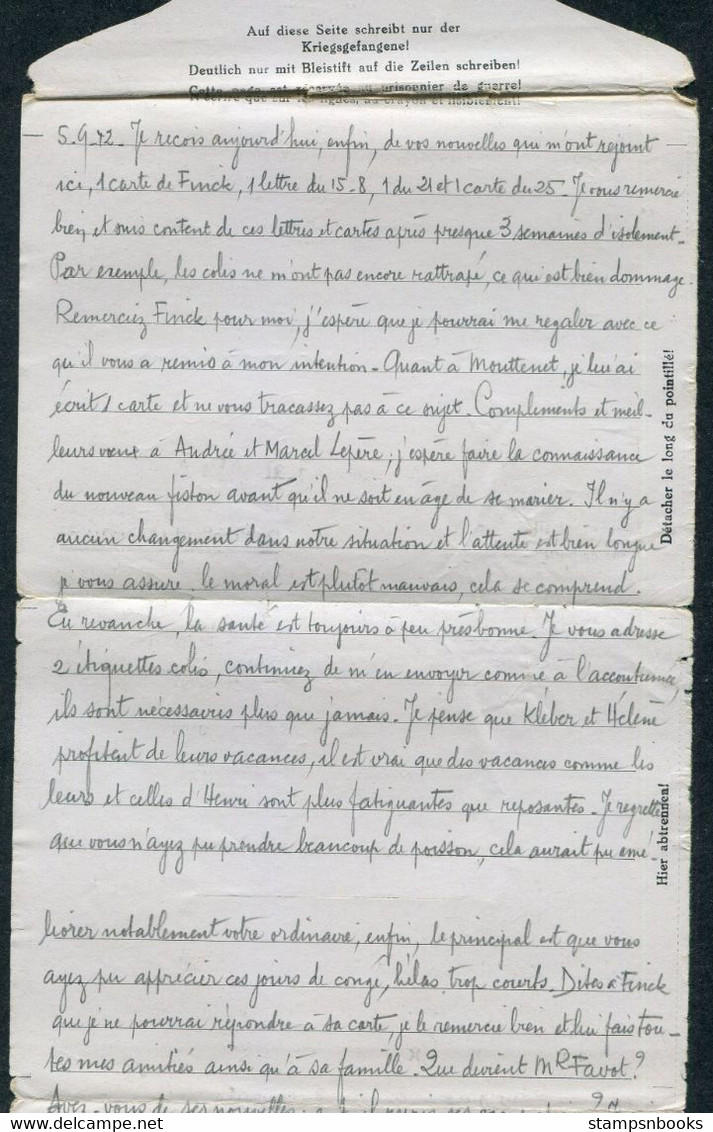 Auf diese Seite schreibt nur der
Kriegsgefangene!
Deutlich nur mit Bleistift auf die Zeilen schreiben!
Cette page est réservée au prisonnier de guerre!
N'écrire que sur les lignes, au crayon et lisiblement!
5.9.42. Je recois aujourd'hui, enfin, de vos nouvelles qui m'ont rejoint
ici, 1 carte de Finck, 1 lettre du 15-8, 1 du 21 et 1 carte du 25. Je vous remercie
bien et suis content de ces lettres et cartes après presque 3 semaines d'isolement.
Par exemple, les colis ne m'ont pas encore rattrapé, ce qui est bien dommage.
Remerciez Finck pour moi, j'espère que je pourrai me regaler avec ce
qu'il vous a remis à mon intention. Quant à Mouttenet, je lui ai
écrit 1 carte et ne vous tracassez pas à ce sujet. Compliments et meil-
leurs vœux à Andrée et Marcel Lepère, j'espère faire la connaissance
du nouveau fiston avant qu'il ne soit en âge de se marier. Il n'y a
aucun changement dans notre situation et l'attente est bien longue
je vous assure, le moral est plutot mauvais, cela se comprend.
En revanche, la santé est toujours à peu près bonne. Je vous adresse
2 étiquettes colis, continuez de m'en envoyer comme à l'accoutumée,
ils sont nécessaires plus que jamais. Je pense que Kléber et Hélène
profitent de leurs vacances, il est vrai que des vacances comme les
leurs et celles d'Henri sont plus fatiguantes que reposantes. Je regrette
que vous n'ayez pu prendre beaucoup de poisson, cela aurait pu amé-
liorer notablement votre ordinaire, enfin, le principal est que vous
ayez pu apprécier ces jours de congé, hélas trop courts. Dites à Finck
que je ne pourrai répondre à sa carte, je le remercie bien et lui fais tou-
tes mes amitiés ainsi qu'à sa famille. Que devient Mr Favot?
Avez-vous de ses nouvelles
Détacher le long du pointillé!
Hier abtrennen!
stampsnbooks